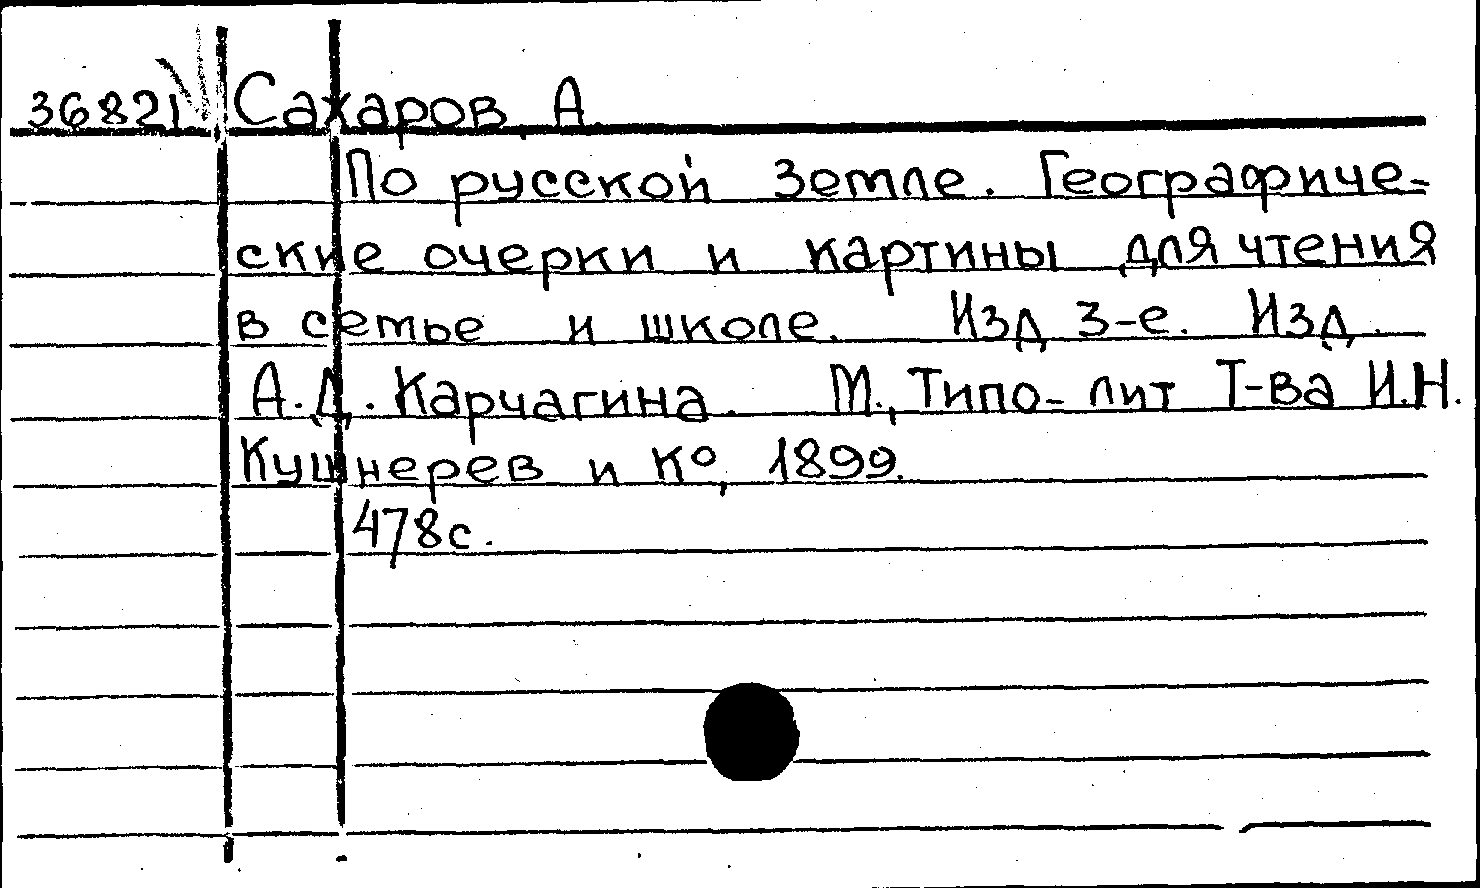 36821 Сахаров, А.
По русской земле. Географиче-
ские очерки и картины для чтения
в семье и школе. Изд 3-е. Изд.
А.Д. Карчагина. М., Типо-лит Т-ва И.Н.
Кушнерев и К°, 1899.
478с.